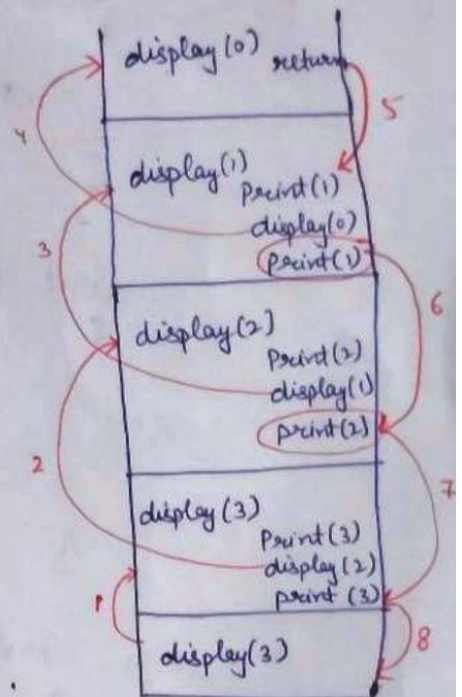 display(0) return
5
4
display(1)
Print(1)
display(0)
Print(1)
3
6
display(2]
Print(2)
display(1)
print(2)
2
7
display(3)
Print(3)
display(2)
print (3)
1
8
display(3)